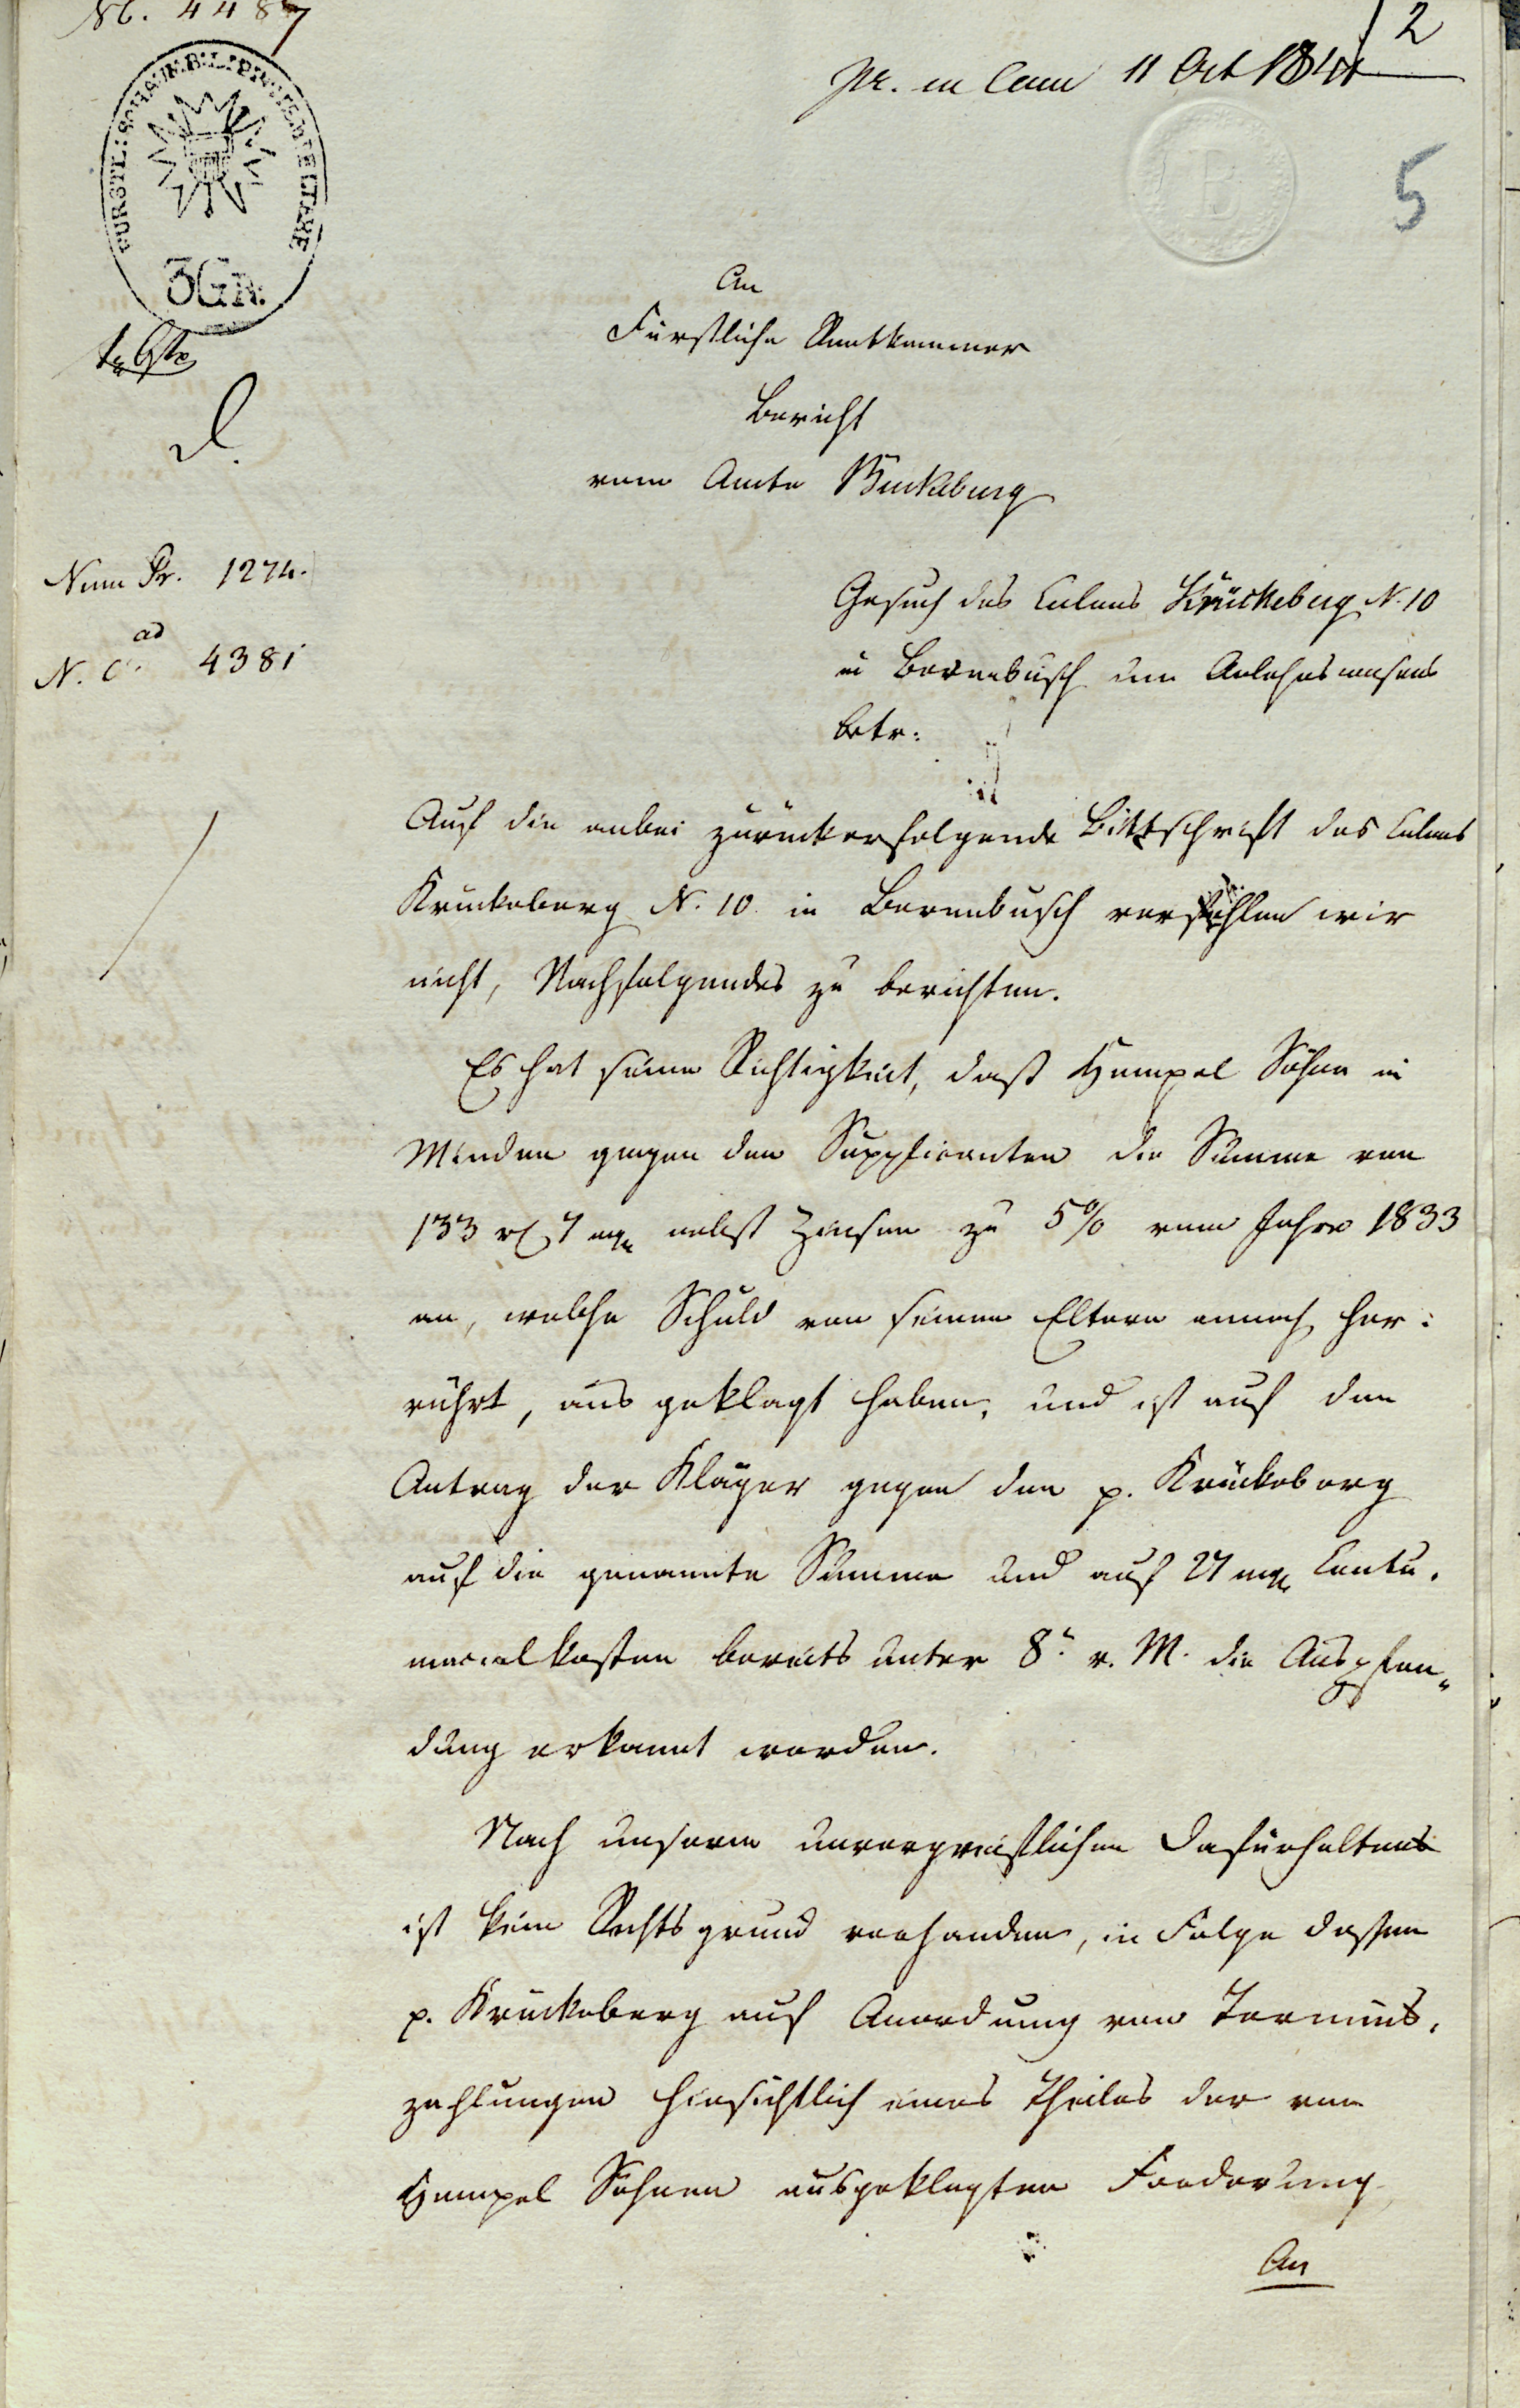 N. 4487
2
pr. in Cam 11 Oct 1841
5
B
FÜRSTL: SCHAUMB: LIPP:
3 GR.
An
Fürstliche Rentkammer
Bericht
vom Amte Bückeburg
Num Pr. 1274.
ad
N. C. 4381
Gesuch des Colons Krückeberg N. 10
in Berenbusch um Anlehnsconsens
betr:
Auf die anbei zurückerfolgende Bittschrift des Colons
Krückeberg N. 10 in Berenbusch verfehlen wir
nicht, Nachfolgendes zu berichten.
Es hat seine Richtigkeit, daß Hempel Söhne in
Minden gegen den Supplicanten die Summe von
133 rℓ 7 mgr nebst Zinsen zu 5% vom Jahre 1833
an, welche Schuld von seinen Eltern annoch her:
rührt, aus geklagt haben, und ist auf den
Antrag der Kläger gegen den p. Krückeberg
auf die genannte Summe und auf 27 mgr Contu-
macialkosten bereits unter 8. v. M. die Auspfän-
dung erkannt worden.
Nach unserm unvorgreiflichen Dafürhalten
ist kein Rechtsgrund vorhanden, in Folge dessen
p. Krückeberg auf Anordnung von Termins-
zahlungen hinsichtlich eines Theiles der von
Hempel Söhnen ausgeklagten Forderung
An